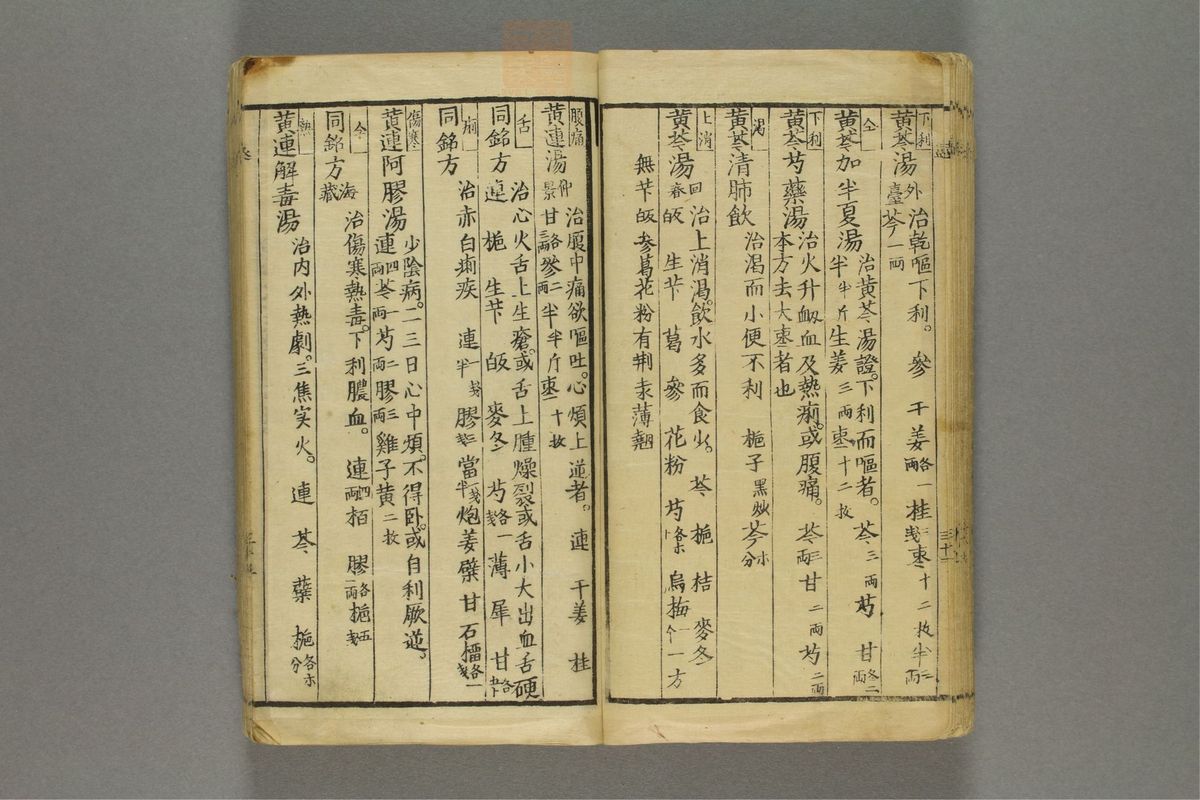 下利
黄芩湯 外臺 治乾嘔下利。 參 干姜各一兩 桂 棗十二枚 半二兩
芩一兩
仝
黄芩加半夏湯 治黄芩湯證。下利而嘔者。 芩三兩 芍 甘各二兩
半半斤 生姜三兩 棗十二枚
下利
黄芩芍藥湯 治火升衂血及熱痢。或腹痛。 芩三兩 甘二兩 芍二兩
本方去大棗者也
渇
黄芩清肺飲 治渇而小便不利 梔子黑炒 芩
上消
黄芩湯 回春 治上消渇。飲水多而食少。 芩 梔 桔 麥冬
生芐 葛 參 花粉 芍 烏梅一个 一方
無芐 參葛花粉有荆芥薄翹
腹痛
黄連湯 仲景 治腹中痛欲嘔吐。心煩上逆者。 連 干姜 桂
甘各三兩 參二兩 半半斤 棗十枚
舌
同銘方 治心火舌上生瘡。或舌上腫燥裂或舌小大出血舌硬
連 梔 生芐 麥冬 芍各一 薄 犀 甘
痢
同銘方 治赤白痢疾 連一半 膠 當 炮姜 蘗 甘 石榴各一
傷寒
黄連阿膠湯 少陰病。二三日心中煩。不得卧。或自利厥逆。
連四兩 芩一兩 芍二兩 膠三兩 雞子黄二枚
仝
同銘方 海藏 治傷寒熱毒。下利膿血。 連四兩 栢 膠各一兩 梔五
熱
黄連解毒湯 治内外熱劇。三焦实火。 連 芩 蘗 梔各